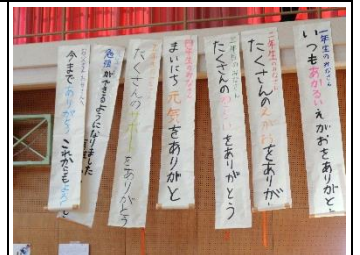 一年生のみなさん
いつもあかるいえがおをありがと
二年生のみなさん
たくさんのえがおをありが
三年生のみなさん
たくさんの をありがとう
四年生のみなさん
まいにち元気をありがと
たくさんのサポートをありがとう
勉強ができるようになりました
今までありがとう これからもよろし